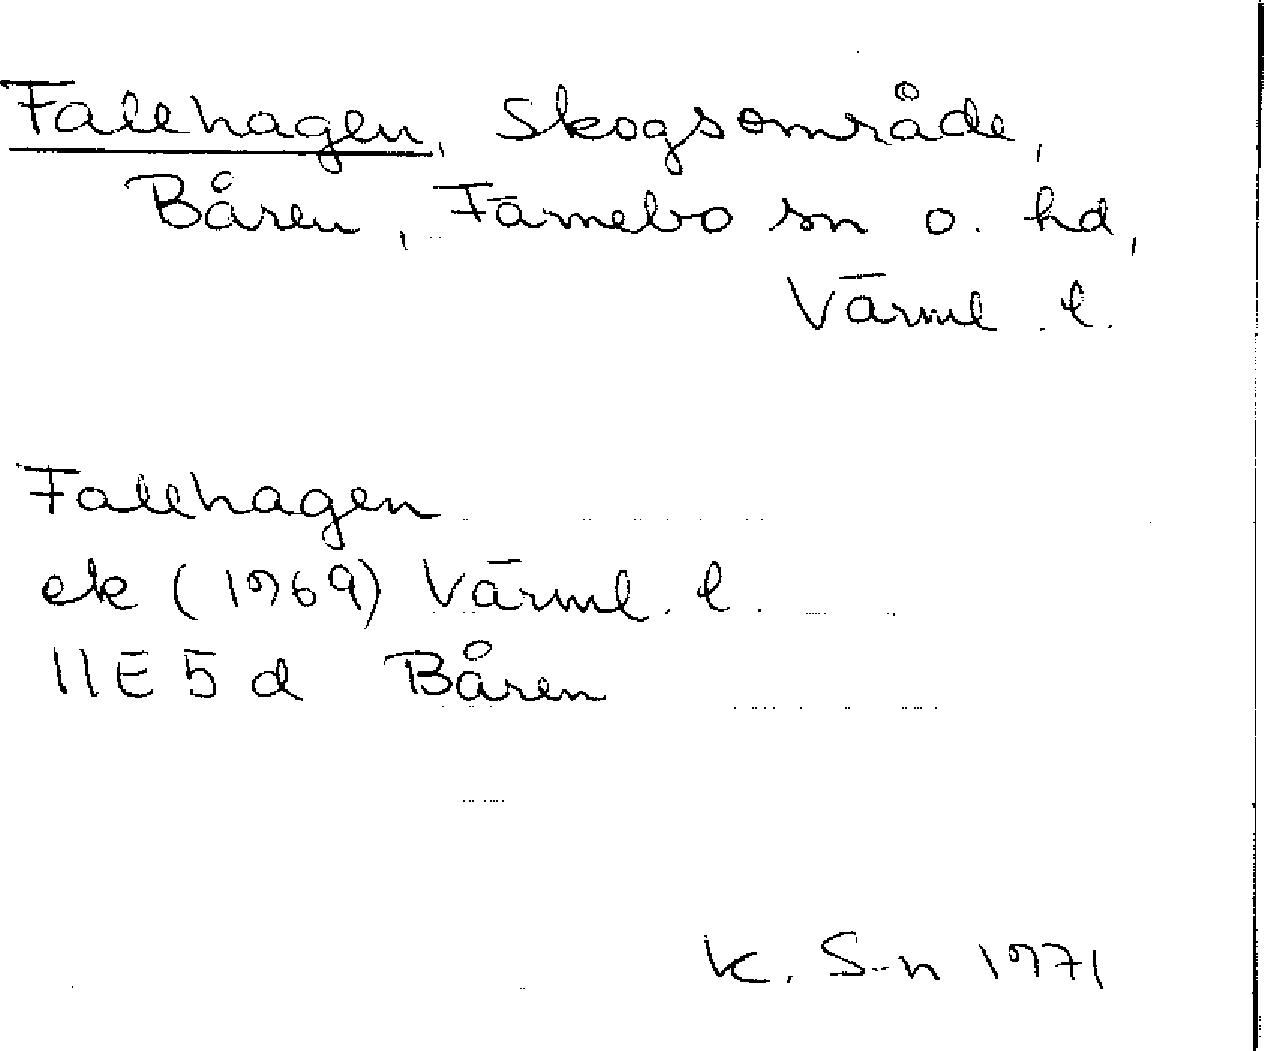 Fallhagen, Skogsområde,
Båren, Färnebo sn o. hd,
Värml. l.
Fallhagen
ek (1969) Värml. l.
11E 5 d Båren
K. S-n 1971